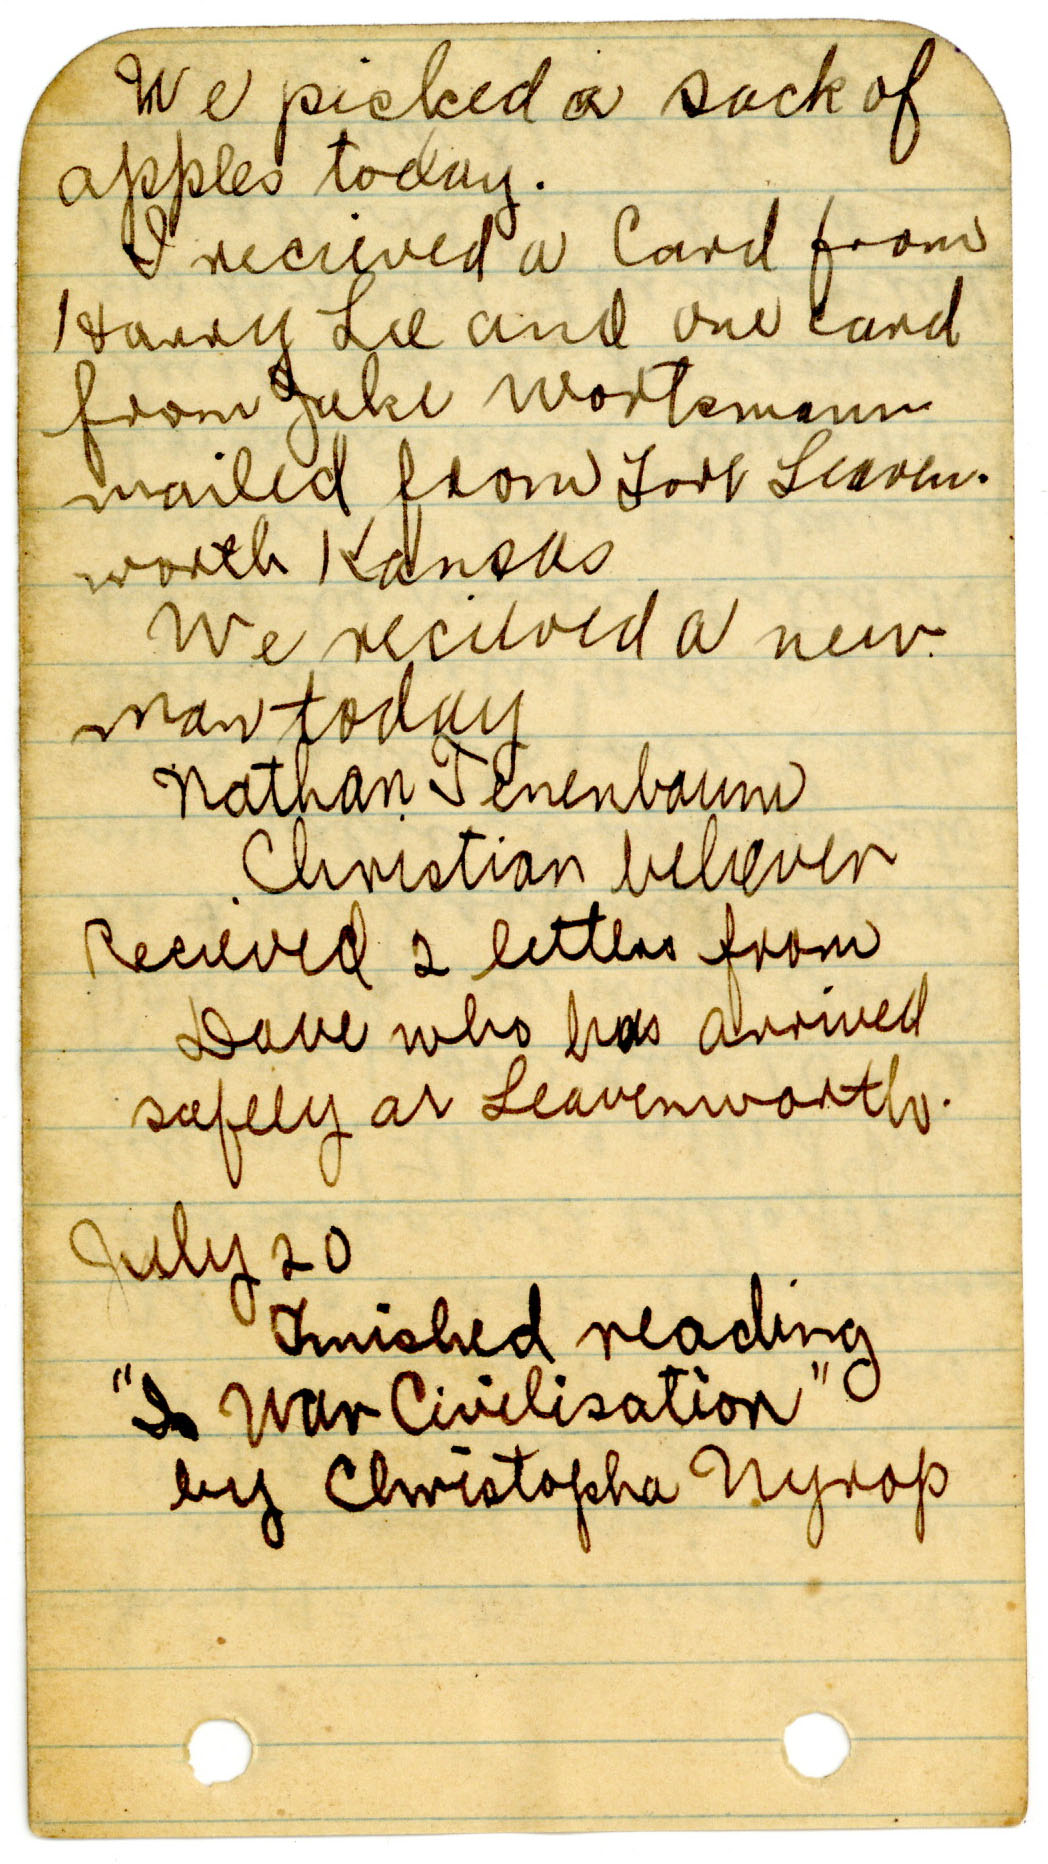 We picked a sack of
apples today.
I recieved a Card from
Harry Lee and one card
from Jake Wortsmann
mailed from Fort Leaven-
worth Kansas
We recieved a new
man today
Nathan Tenenbaum
Christian believer
Recieved 2 letters from
Dave who has arrived
safely at Leavenworth.
July 20
Finished reading
"Is War Civilisation"
by Christopha Nyrop